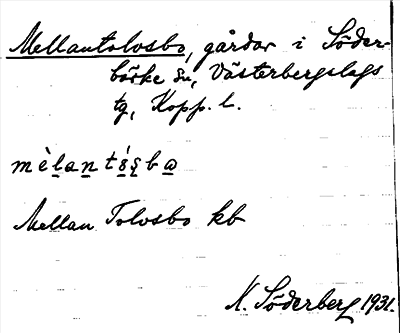 Mellantolvsbo, gårdar i Söder-
bärke sn, Västerbergslags
tg, Kopp. l.
mèlantóšba
Mellan Tolvsbo kb
K. Söderberg 1931.